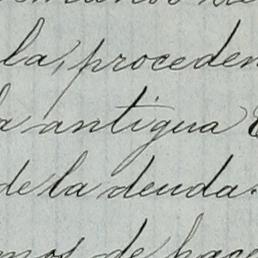 la, proceden
a antigua
de la deuda.
mos de hace